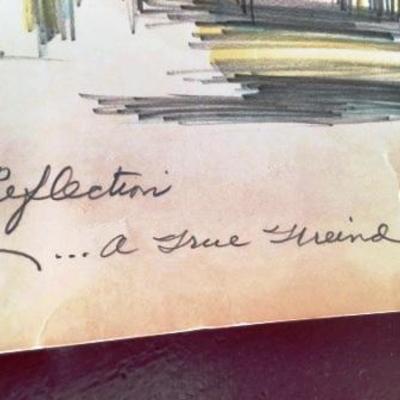 Reflection
... A True Freind